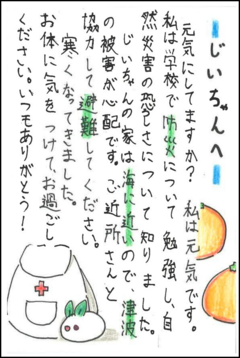 じいちゃんへ
元気にしてますか？ 私は元気です。
私は学校で防災について勉強し、自
然災害の恐しさについて知りました。
じいちゃんの家は海に近いので、津波
の被害が心配です。ご近所さんと
協力して避難してください。
寒くなってきました。
お体に気をつけて、お過ごし
ください。いつもありがとう！